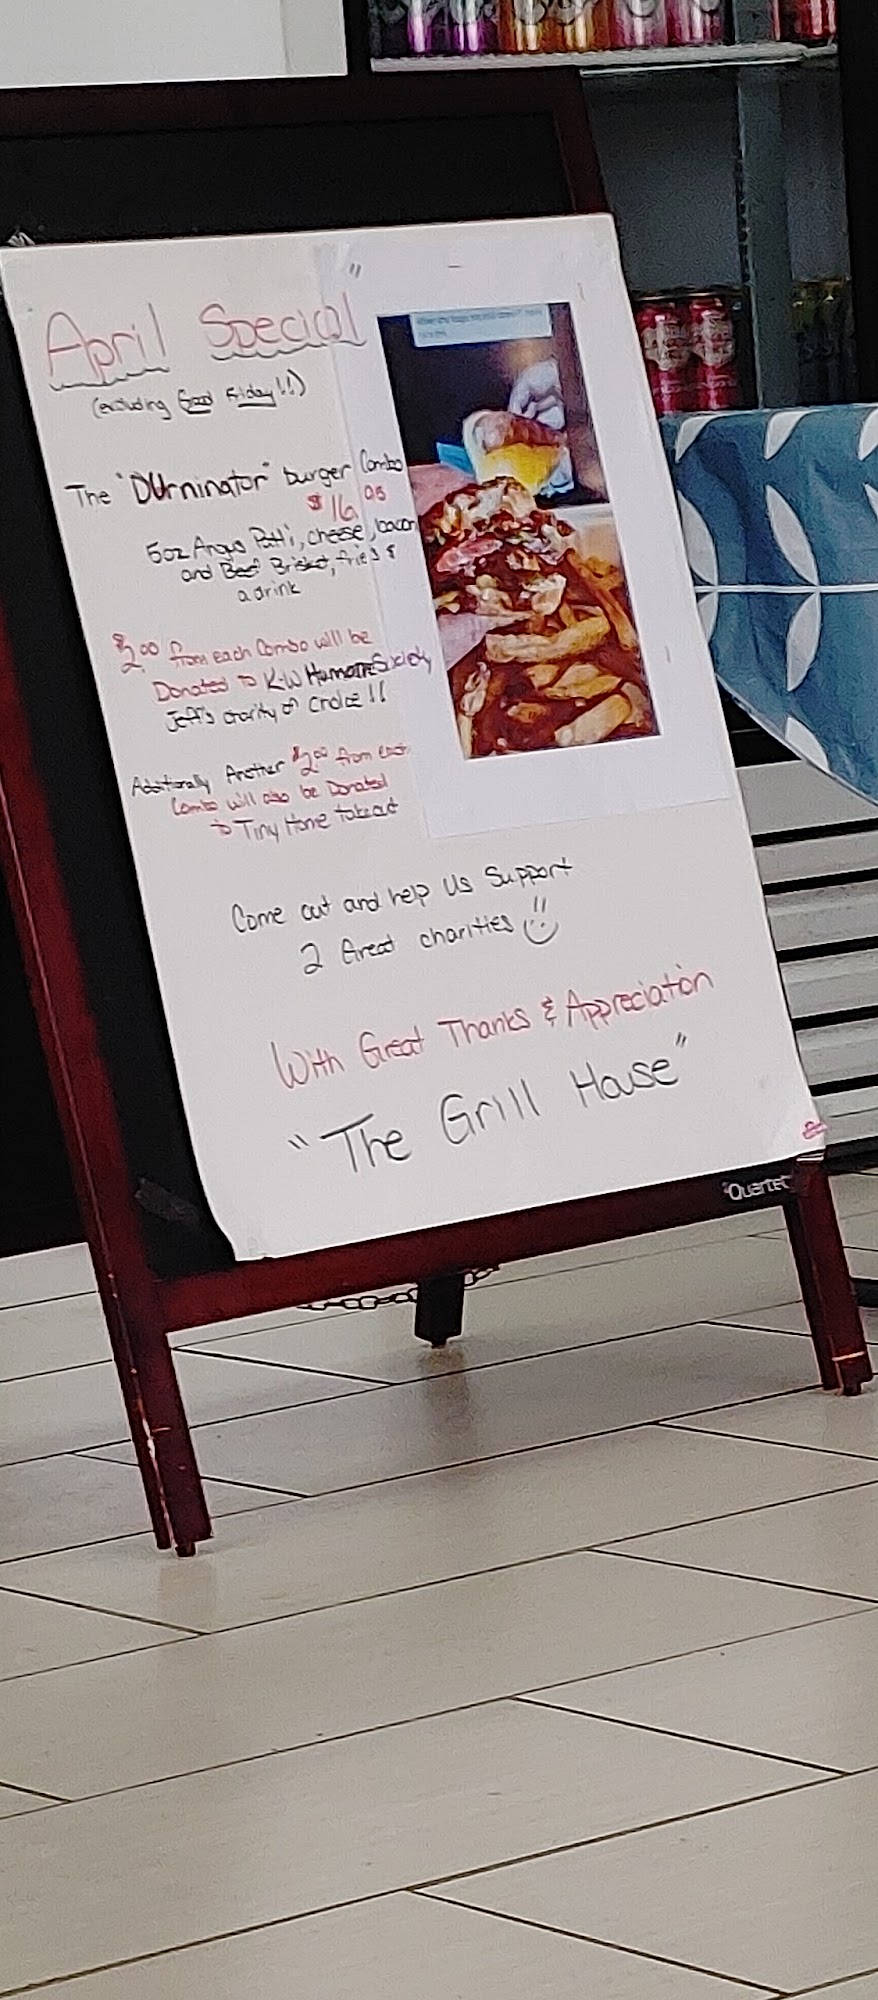 April Special
(excluding Good Friday!!)
The "DUrninator" burger Combo
$16.95
5oz Angus Patti, cheese, bacon
and Beef Brisket, fries &
a drink
$2.00 from each Combo will be
Donated to K-W Humane Society
Jeff's charity of choice!!
Additionally Another $2.00 from each
Combo will also be Donated
to Tiny Home takeout
Come out and help us support
2 Great charities
With Great Thanks & Appreciation
"The Grill House"
Quartet